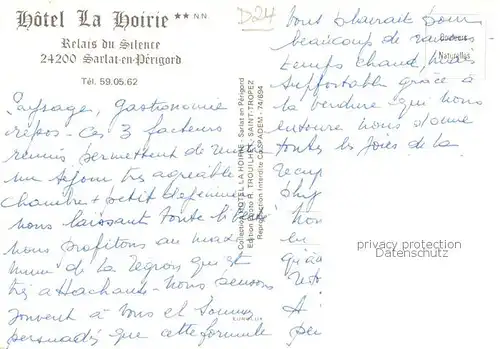 Hôtel La Hoirie ★★ N.N.
Relais du Silence
24200 Sarlat-en-Périgord
Tél. 59.05.62
D24
Couleurs
Naturelles
Paysage, Gastronomie
repos - Ces 3 facteurs
réunis permettent de
un séjour très agréable -
Chambre + petit déjeuner
nous laissant toute
nous profitons au maxi-
mum de la région qui est
très attachante - Nous pensons
souvent à vous et sommes
persuadés que cette formule
vous plairait pour
beaucoup de
temps chaud, mais
supportable grâce à
la verdure qui nous
entoure nous donne
toutes les joies de la
Collection HOTEL LA HOIRIE - Sarlat en Périgord
Edition Photo R. TROUILHET - SAINT-TROPEZ
Reproduction Interdite C. SPADEM - 74/694
EUROLUX
privacy protection
Datenschutz